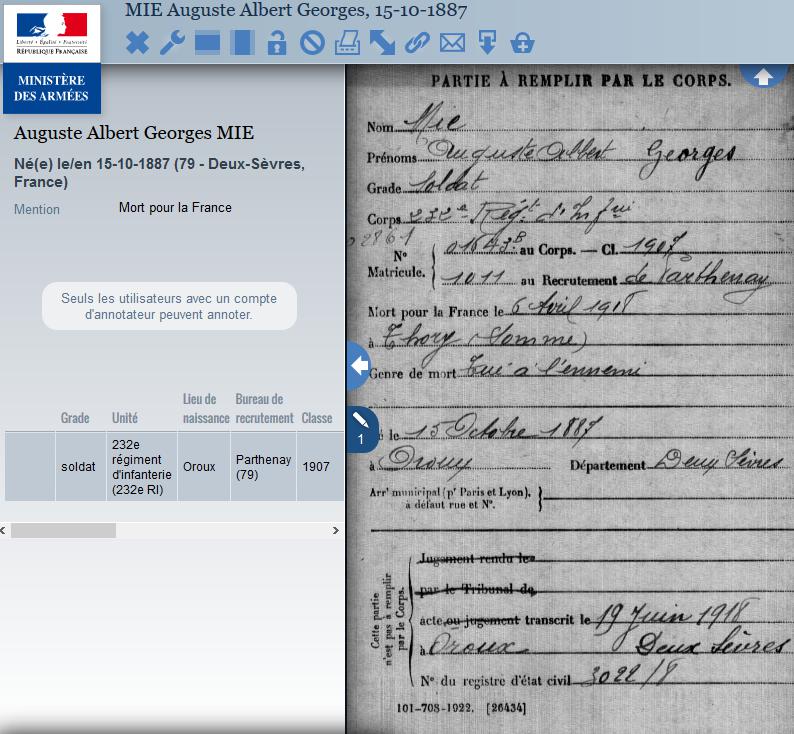 MIE Auguste Albert Georges, 15-10-1887
Liberté • Égalité • Fraternité
RÉPUBLIQUE FRANÇAISE
MINISTÈRE
DES ARMÉES
Auguste Albert Georges MIE
Né(e) le/en 15-10-1887 (79 - Deux-Sèvres,
France)
Mention Mort pour la France
Seuls les utilisateurs avec un compte
d'annotateur peuvent annoter.
Grade Unité Lieu de naissance Bureau de recrutement Classe
soldat 232e régiment d'infanterie (232e RI) Oroux Parthenay (79) 1907
1
PARTIE À REMPLIR PAR LE CORPS.
Nom Mie
Prénoms Auguste Albert Georges
Grade Soldat
Corps 232e Régt d'Infrie
Nº 01643B au Corps. — Cl. 1907
Matricule. 1011 au Recrutement de Parthenay
Mort pour la France le 6 Avril 1918
à Thory (Somme)
Genre de mort Tué à l'ennemi
le 15 Octobre 1887
à Oroux Département Deux Sèvres
Arrt municipal (pr Paris et Lyon),
à défaut rue et Nº.
Cette partie
n'est pas à remplir
par le Corps.
Jugement rendu le
par le Tribunal de
acte ou jugement transcrit le 19 Juin 1918
à Oroux Deux Sèvres
Nº du registre d'état civil 3022/8
101-708-1922. [26434]